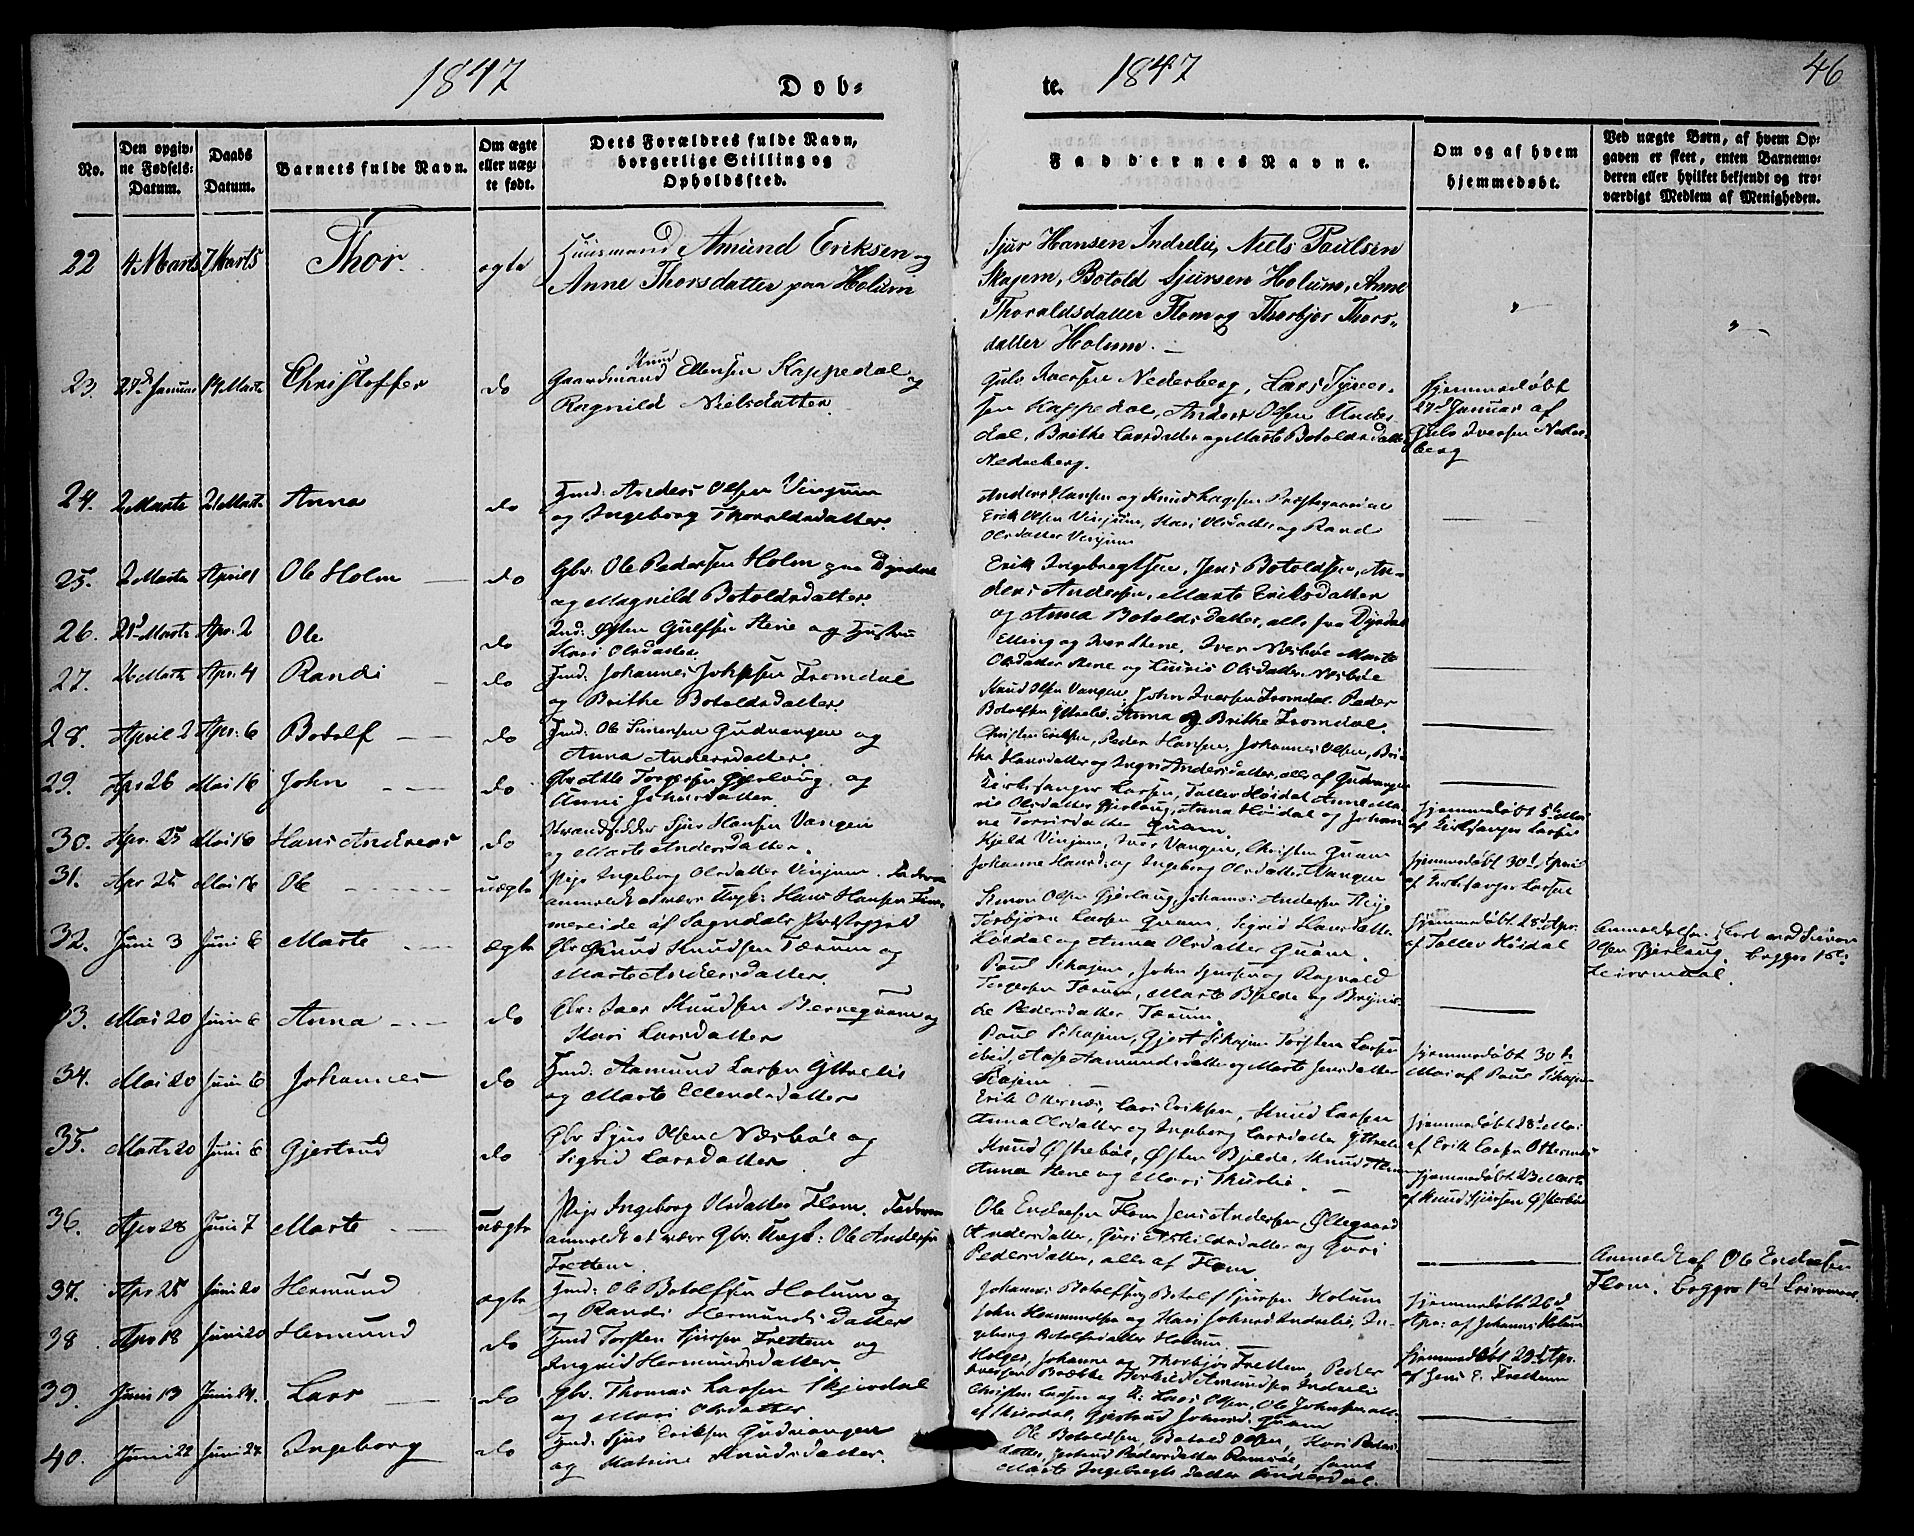 1847
Døb-
te.
1847
46
No.
Den opgiv-
ne Fødsels-
Datum.
Daabs
Datum.
Barnets fulde Navn.
Om ægte
eller uæg-
te født.
Dets Forældres fulde Navn,
borgerlige Stilling og
Opholdssted.
Faddernes Navne.
Om og af hvem
hjemmedøbt.
Ved uægte Børn, af hvem Op-
gaven er skeet, enten Barnemo-
deren eller hvilket bekjendt og tro-
værdigt Medlem af Menigheden.
22
4 Marts
7 Marts
Thor
ægte
Huusmand Amund Eriksen og
Anne Thorsdatter paa Holum
Sjur Hansen Indrelie, Niels Paulsen
Skajem, Botold Sjursen Holum, Anne
Thoraldsdatter Flom og Thorbjør Thors-
datter Holum.
23.
27d Januar
14 Marts
Christoffer
do
Gaardmand Knud Ellensen Kappedal og
Ragnild Nielsdatter
Gulv Iversen Nederberg, Lars
sen Kappedal, Anders Olsen Under-
dal, Brithe Larsdatter og Marte Botoldsdatter
Nederberg.
Hjemmedøbt
27d Januar af
Gulv Iversen Neder-
berg
24.
2 Marts
21 Marts
Anna
do
Hmd: Anders Olsen Vinjum
og Ingeborg Thoraldsdatter
Anders Hansen og Knud
Erik Olsen Vinjum, Kari Olsdatter og Rand
Olsdatter Vinjum
25.
2 Marts
April 1
Ole Holm
do
Gbr: Ole Pedersen Holm paa Dyrdal
og Magnild Botoldsdatter
Erik Ingebregtsen, Jens Botoldsen, An-
ders Andersen, Marte Eriksdatter
og Anna Botoldsdatter, alle fra Dyrdal
26.
21d Marts
Apr. 2
Ole
do
Østen Gulfsen Stene og Hustru
Kari Olsdatter
Elling og Iver Stene, Iver Næsbøe Marte
Olsdatter Stene og Olsdatter Næsbøe
27.
26 Marts
Apr. 4
Randi
do
Hmd. Johannes Johnsen Fromdal
og Brithe Botoldsdatter
Knud Olsen Vangen, John Iversen Fromdal Peder
Botolfsen Ytrelie, Anna og Brithe Fromdal.
28.
April 2
Apr. 6
Botolf
do
Hmd: Ole Simensen Gudvangen og
Anna Andersdatter
Christen Eriksen, Peder Hansen, Johannes Olsen, Bri-
the Hansdatter og Ingri Andersdatter, alle af Gudvangen
29.
Apr 26
Mai 16
John
do
Gbr Atle Torgersen Gjerløug og
Anni Johnsdatter
Kirkesanger Larsen, Tollev Høidal Anne Ma-
rie Olsdatter Gjerløug, Anna Høidal og Johan-
ne Torrisdatter Quam.
Hjemmedøbt 5te Mai
af Kirkesanger Larsen
30.
Apr. 25
Mai 16
Hans Andreas
do
Strandsidder Sjur Hansen Vangen
og Marte Andersdatter.
Kjeld Vinjum, Iver Vangen, Christen Quam
Johanne Hansd: og Ingeborg Olsdatter Vangen
Hjemmedøbt 30d April
af Kirkesanger Larsen
31.
Apr 25
Mai 16
Ole
uægte
Pige Ingeborg Olsdatter Vinjum. Faderen
anmeldt at være Ungk: Hans Hansen
af Sogndals Præstegjeld
Simon Olsen Gjerløug, Johannes Andersen
Torbjørn Larsen Quam, Sigrid Hansdatter
Høidal og Anna Olsdatter Quam.
Hjemmedøbt 28d Apr.
af Tollev Høidal
Olsen Gjerløug. begges 1ste
Leiermaal.
32.
Juni 3
Juni 6
Marte
ægte
Gbr Knud Knudsen Tærum og
Marte Andersdatter.
Paul Skajem, John Sjursen og Ragnald
Torgersen Tærum, Marte Bjelde og
Pedersdatter Tærum.
33.
Mai 20
Juni 6
Anna
do
Gbr: Iver Knudsen Berrequam og
Kari Larsdatter
Paul Skajem, Gjert Skajem Torsten Larsen
Aase Aamundsdatter og Marte Jensdatter
Skajem
Hjemmedøbt 30te
Mai af Paul Skajem
34.
Mai 20
Juni 6
Johannes
do
Hmd. Aamund Larsen Ytrelie
og Marte Ellendsdatter
Erik Otternæs, Lars Eriksen, Knud Larsen
Anna Olsdatter og Ingeborg Larsdatter Ytrelie
Hjemmedøbt 28d Mai
af Erik Larsen Otternæs
35.
Marts 20
Juni 6
Gjertrud
do
Gbr Sjur Olsen Næsbøe og
Sigrid Larsdatter
Knud Østerbøe, Østen Bjelde, Knud Stene
Anna Stene og Mari
Hjemmedøbt 23 Marts
af Knud Sjursen Østerbøe
36.
Apr 28
Juni 7
Marte
uægte
Pige Ingeborg Olsdatter Flom. Faderen
anmeldt at være Gbr. Ungk: Ole Andersen
Frettem
Ole Endresen Flom Jens Andersen, Øllegaard
Andersdatter, Guri Askildsdatter og Guri
Pedersdatter, alle af Flom.
Anmeldt af Ole Endresen
Flom. begges 1ste Leiermaal.
37.
Apr 25
Juni 20
Hermund
ægte
Hmd: Ole Botolfsen Holum og
og Randi Hermundsdatter
Johannes Botolfsen Botolf Sjursen Holum
John Hermundsen og Kari Johnsd Indrelie, In-
geborg Botolfsdatter Holum
Hjemmedøbt 26d
Apr. af Johannes Holum
38
Apr 18
Juni 20
Hermund
do
Hmd Torsten Sjursen Frettem og
Ingrid Hermundsdatter.
Holger, Johanne og Thorbjør Frettem, Peder
Amundsen Indrelie
Hjemmedøbt 23d Apr.
af Jens E. Frettem
39.
Juni 13
Juni 24.
Lars
do
Gbr. Thomas Larsen Skjerdal
og Mari Olsdatter
Christen Larsen og Lars Olsen, Ole Johnsen alle
af Skjerdal, Gjertrud Johnsd: Quam
40.
Juni 22
Juni 24
Ingeborg
do
Hmd: Sjur Eriksen Gudvangen
og Matrine Knudsdatter.
Ole Botoldsen, Botold Olsen, Kari Peders-
datter, Gjertrud Pedersdatter Ramsøe, samt
Marte Ingebregtsdatter Underdal.